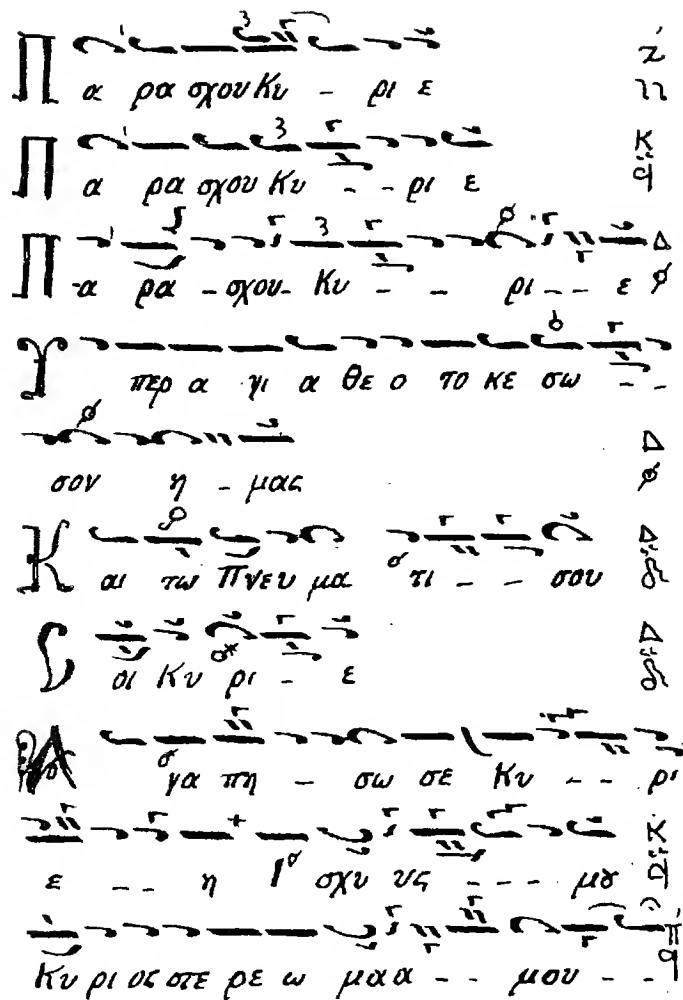 Πα ρα σχου Κυ - ρι ε
Πα ρα σχου Κυ - - ρι ε
Πα ρα - σχου - Κυ - - ρι - - ε
Υπερ α γι α θε ο το κε σω - -
σον η - μας
Και τω Πνευ μα τι - - σου
Σοι Κυ ρι - ε
Αγα πη - σω σε Κυ - - ρι
ε - - η Ι σχυ υς - - - μȣ
Κυ ρι ος στε ρε ω μα α - - μου - -